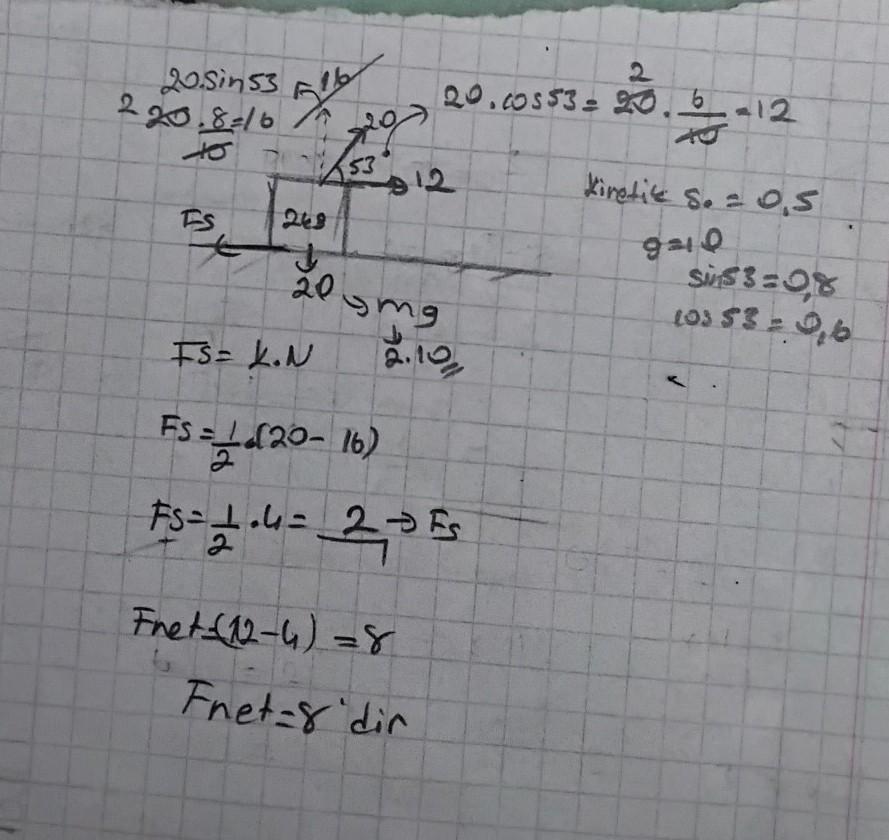 20.sin53
2 20 . 8/10 = 16
F 16
20
53°
20.cos53 = 2 20 . 6/10 = 12
12
Fs
2kg
20 → mg
2.10
kinetik s. = 0,5
g=10
sin53 = 0,8
cos 53 = 0,6
Fs = k.N
Fs = 1/2 . (20 - 16)
Fs = 1/2 . 4 = 2 → Fs
Fnet = (12-4) = 8
Fnet = 8 'dir